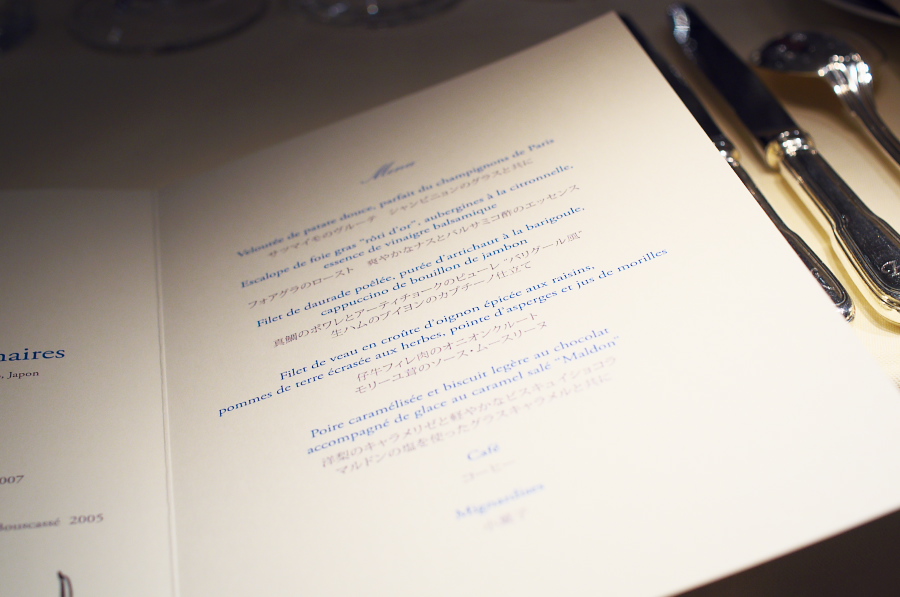 naires
, Japon
2007
Bouscassé 2005
Menu
Veloutée de patate douce, parfait du champignons de Paris
サツマイモのヴルーテ シャンピニョンのグラスと共に
Escalope de foie gras "rôti d'or", aubergines à la citronnelle,
essence de vinaigre balsamique
フォアグラのロースト 爽やかなナスとバルサミコ酢のエッセンス
Filet de daurade poêlée, purée d'artichaut à la barigoule,
cappuccino de bouillon de jambon
真鯛のポワレとアーティチョークのピューレ "バリグール風"
生ハムのブイヨンのカプチーノ仕立て
Filet de veau en croûte d'oignon épicée aux raisins,
pommes de terre écrasée aux herbes, pointe d'asperges et jus de morilles
仔牛フィレ肉のオニオンクルート
モリーユ茸のソース・ムースリーヌ
Poire caramélisée et biscuit legère au chocolat
accompagné de glace au caramel salé "Maldon"
洋梨のキャラメリゼと軽やかなビスキュイショコラ
マルドンの塩を使ったグラスキャラメルと共に
Café
コーヒー
Mignardises
小菓子